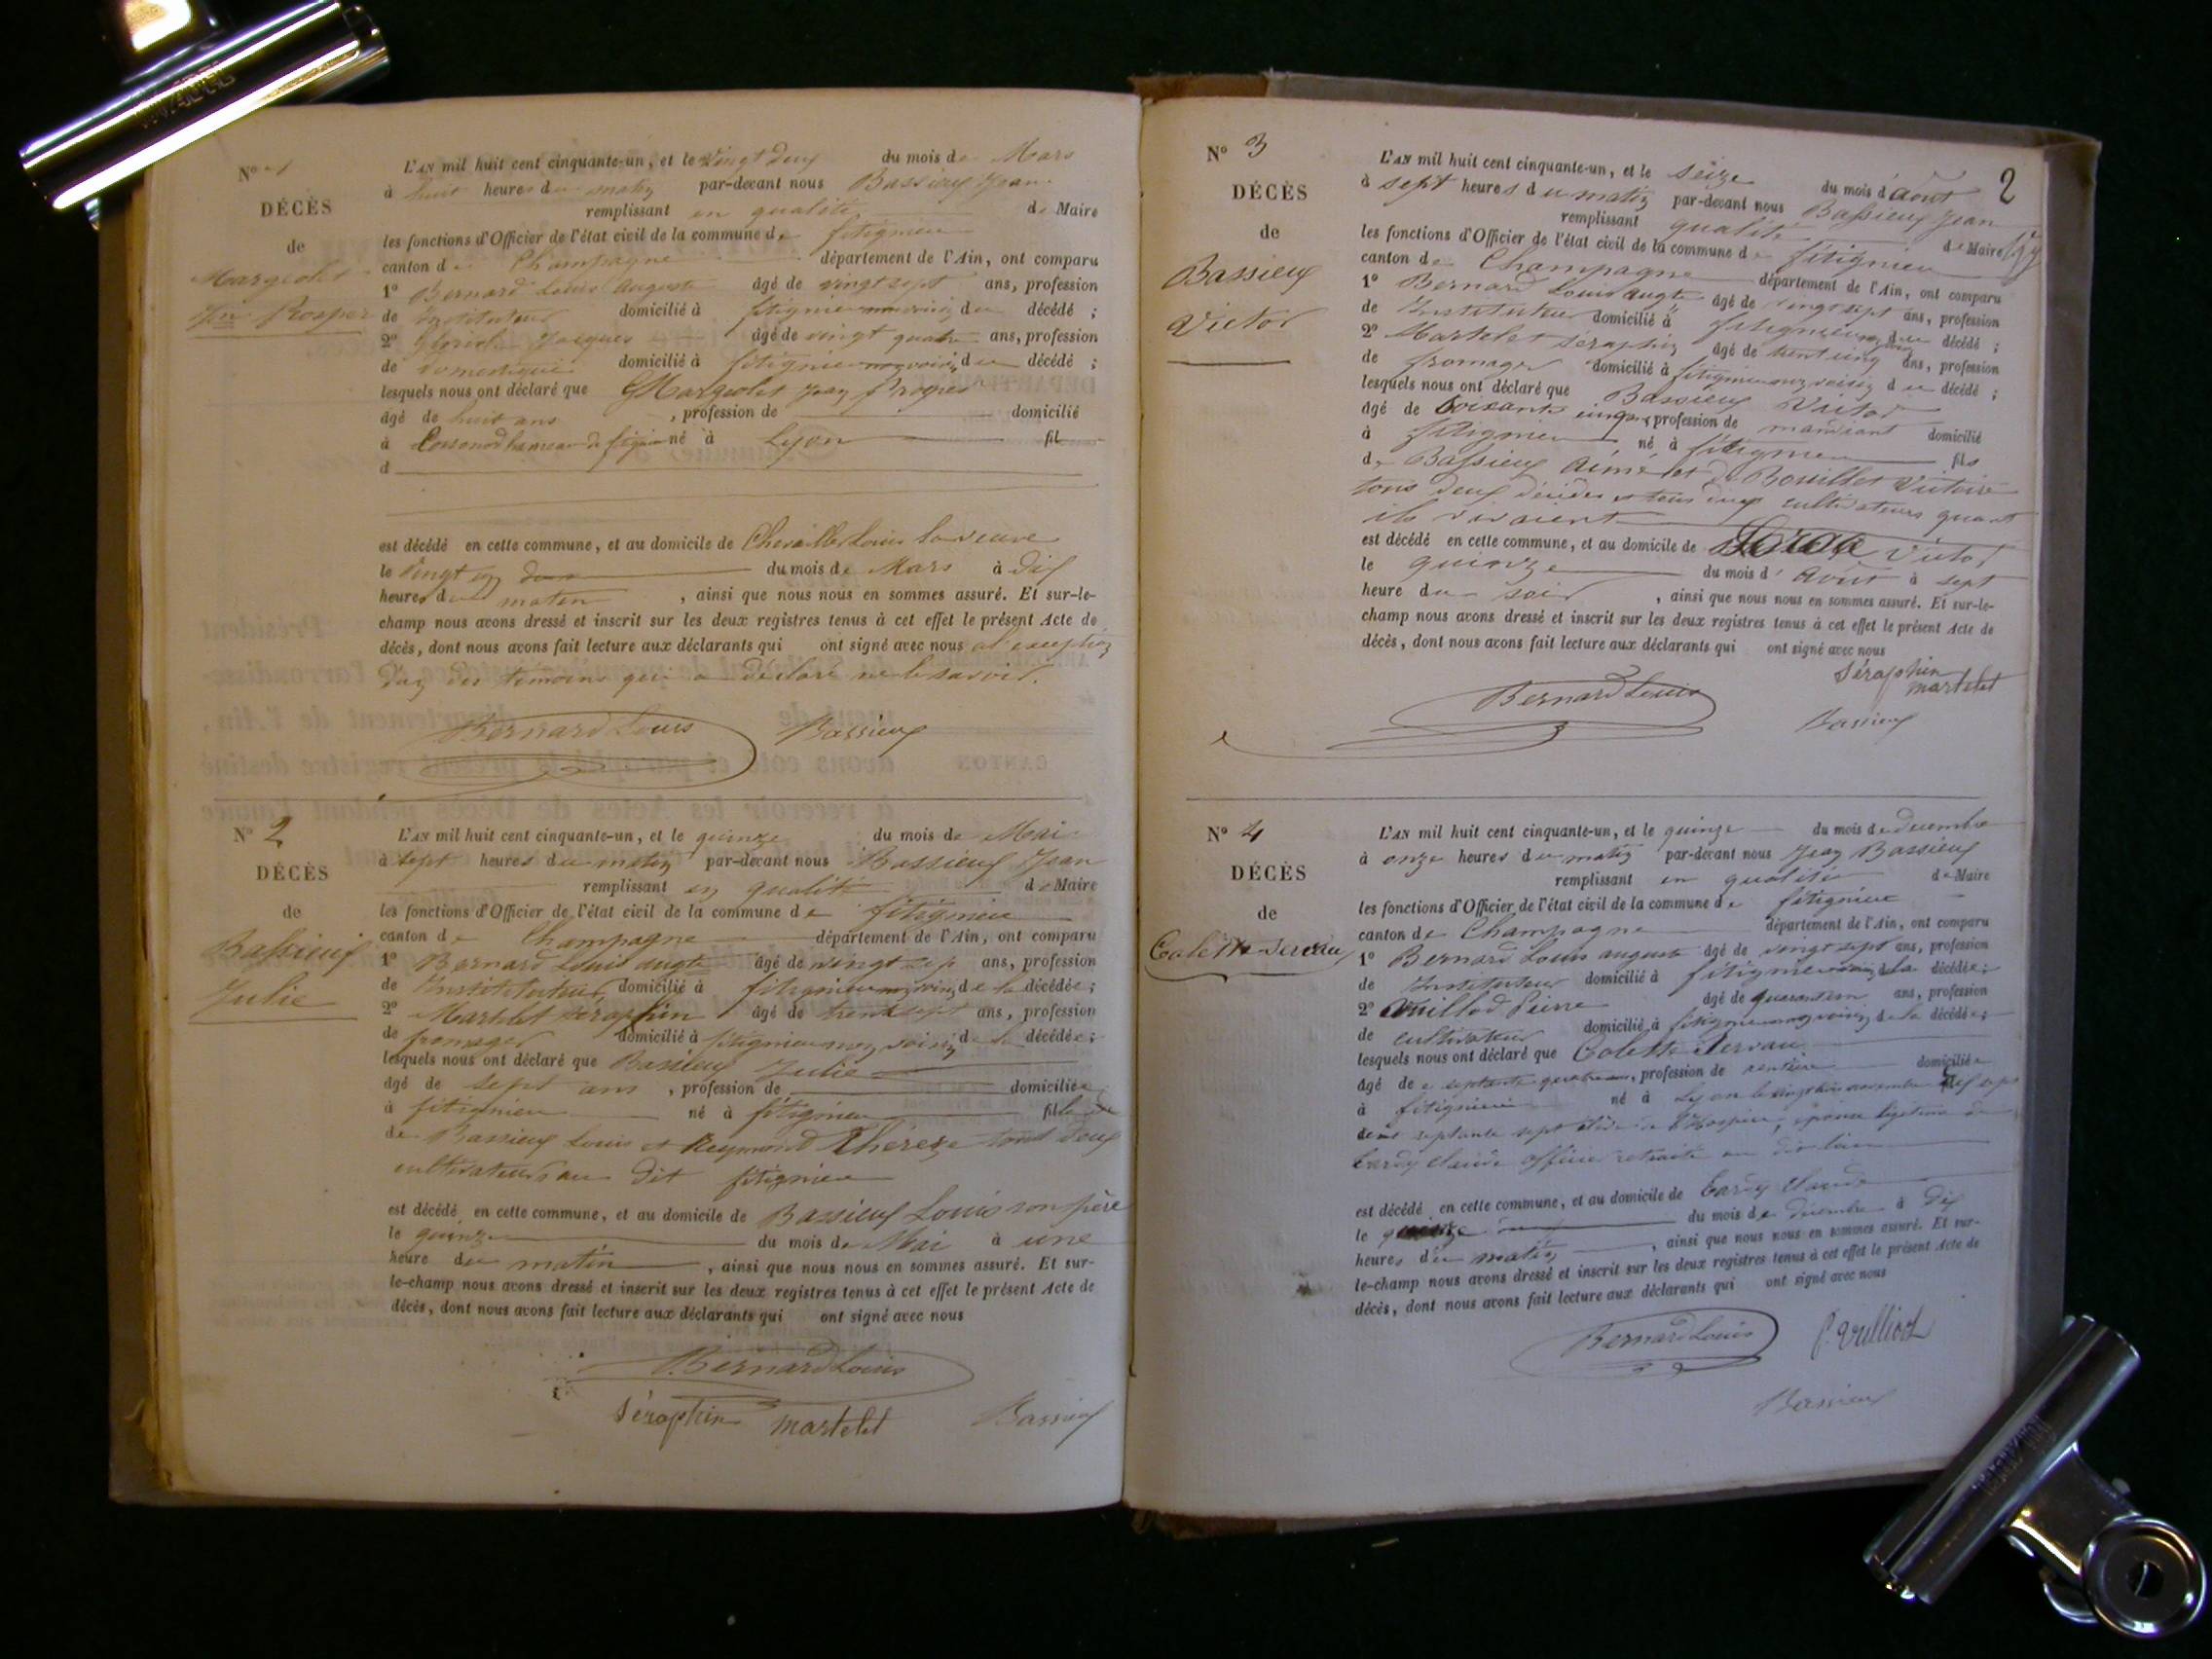 N° 1
DÉCÈS
de
Margeolet
Jn Prosper
L'AN mil huit cent cinquante-un, et le vingt deux du mois de Mars
à huit heures du matin par-devant nous Bassieux Jean
remplissant en qualité de Maire
les fonctions d'Officier de l'état civil de la commune de fitignieu
canton de Champagne département de l'Ain, ont comparu
1° Bernard Louis auguste âgé de vingt sept ans, profession
de Instituteur domicilié à fitignieu voisin du décédé ;
2° Jacques âgé de vingt quatre ans, profession
de domestique domicilié à fitignieu non voisin du décédé ;
lesquels nous ont déclaré que Margeolet Jean
âgé de huit ans , profession de domicilié
à hameau de né à Lyon fil
d
est décédé en cette commune, et au domicile de Louis sa veuve
le vingt du mois de Mars à dix
heures du matin , ainsi que nous nous en sommes assuré. Et sur-le-
champ nous avons dressé et inscrit sur les deux registres tenus à cet effet le présent Acte de
décès, dont nous avons fait lecture aux déclarants qui ont signé avec nous a l'exception
d'un des témoins qui a déclaré ne le savoir.
Bernard Louis Bassieux
N° 2
DÉCÈS
de
Bassieux
Julie
L'AN mil huit cent cinquante-un, et le quinze du mois de Mai
à sept heures du matin par-devant nous Bassieux Jean
remplissant en qualité de Maire
les fonctions d'Officier de l'état civil de la commune de fitignieu
canton de Champagne département de l'Ain, ont comparu
1° Bernard Louis augte âgé de vingt sep ans, profession
de Instituteur domicilié à fitignieu voisin de la décédée ;
2° Martelet séraphin âgé de trente sept ans, profession
de fromager domicilié à fitignieu non voisin de la décédée ;
lesquels nous ont déclaré que Bassieux Julie
âgé de sept ans , profession de domiciliée
à fitignieu né à fitignieu fille
de Bassieux Louis et Reymond Thérèze tout deux
cultivateurs au dit fitignieu
est décédé en cette commune, et au domicile de Bassieux Louis son père
le quinze du mois de Mai à une
heure du matin , ainsi que nous nous en sommes assuré. Et sur-
le-champ nous avons dressé et inscrit sur les deux registres tenus à cet effet le présent Acte de
décès, dont nous avons fait lecture aux déclarants qui ont signé avec nous
Bernard Louis
Séraphin martelet Bassieux
2
N° 3
DÉCÈS
de
Bassieux
Victor
L'AN mil huit cent cinquante-un, et le seize du mois d'aout
à sept heures du matin par-devant nous Bassieux Jean
remplissant qualité de Maire
les fonctions d'Officier de l'état civil de la commune de fitignieu
canton de Champagne département de l'Ain, ont comparu
1° Bernard Louis augte âgé de vingt sept ans, profession
de Instituteur domicilié à fitignieu du décédé ;
2° Martelet séraphin âgé de ans, profession
de fromager domicilié à fitignieu non voisin du décédé ;
lesquels nous ont déclaré que Bassieux Victor
âgé de soixante cinq ans, profession de mandiant domicilié
à fitignieu né à fitignieu fils
de Bassieux Aimé et de Bouillet Victoire
tous deux décédés et tous deux cultivateurs quant
ils vivaient
est décédé en cette commune, et au domicile de Victor
le quinze du mois d' Aout à sept
heure du soir , ainsi que nous nous en sommes assuré. Et sur-le-
champ nous avons dressé et inscrit sur les deux registres tenus à cet effet le présent Acte de
décès, dont nous avons fait lecture aux déclarants qui ont signé avec nous
Séraphin
Bernard Louis martelet
Bassieux
N° 4
DÉCÈS
de
Colette Servau
L'AN mil huit cent cinquante-un, et le quinze du mois de decembre
à onze heures du matin par-devant nous Jean Bassieux
remplissant en qualité de Maire
les fonctions d'Officier de l'état civil de la commune de fitignieu
canton de Champagne département de l'Ain, ont comparu
1° Bernard Louis auguste âgé de vingt sept ans, profession
de Instituteur domicilié à fitignieu voisin de la décédée ;
2° Vuillod Pierre âgé de ans, profession
de cultivateur domicilié à fitignieu non voisin de la décédée ;
lesquels nous ont déclaré que Colette Servau
âgé de septante quatre ans, profession de rentière domiciliée
à fitignieu né à Lyon le novembre sept
cent septante sept hospice, épouse légitime de
tardy Claude officier retraité au dit lieu
est décédé en cette commune, et au domicile de tardy Claude
le du mois de decembre à dix
heures du matin , ainsi que nous nous en sommes assuré. Et sur-
le-champ nous avons dressé et inscrit sur les deux registres tenus à cet effet le présent Acte de
décès, dont nous avons fait lecture aux déclarants qui ont signé avec nous
Bernard Louis P. Vuilliod
Bassieux